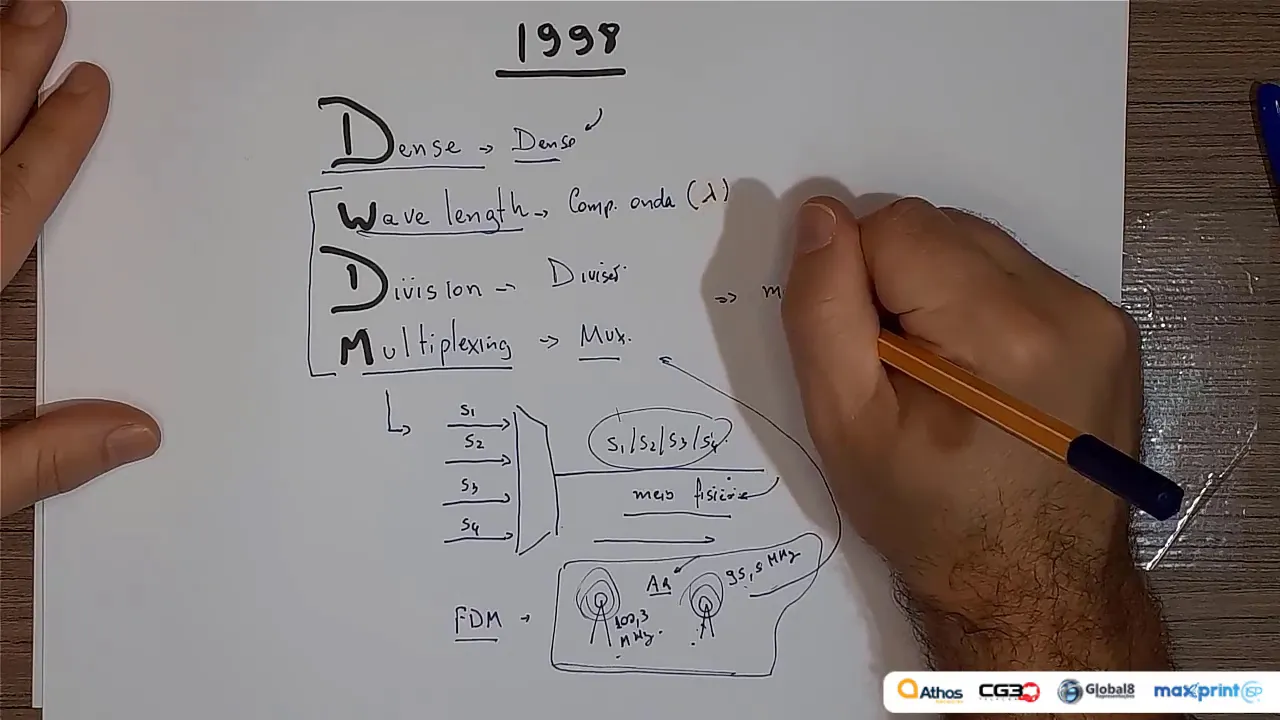 1998
Dense → Dense
Wave length → Comp. onda (λ)
Division → Divisão
⇒ m
Multiplexing → Mux.
S1
S2
S3
S4
S1/S2/S3/S4
meio físico
FDM →
AR
100,3 MHz
95,5 MHz
Athos
CG3
Global8
Representações
maxprint ISP